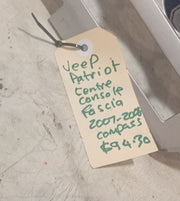 Jeep
Patriot
Centre
Console
Fascia
2007-2008
Compass
$94.30